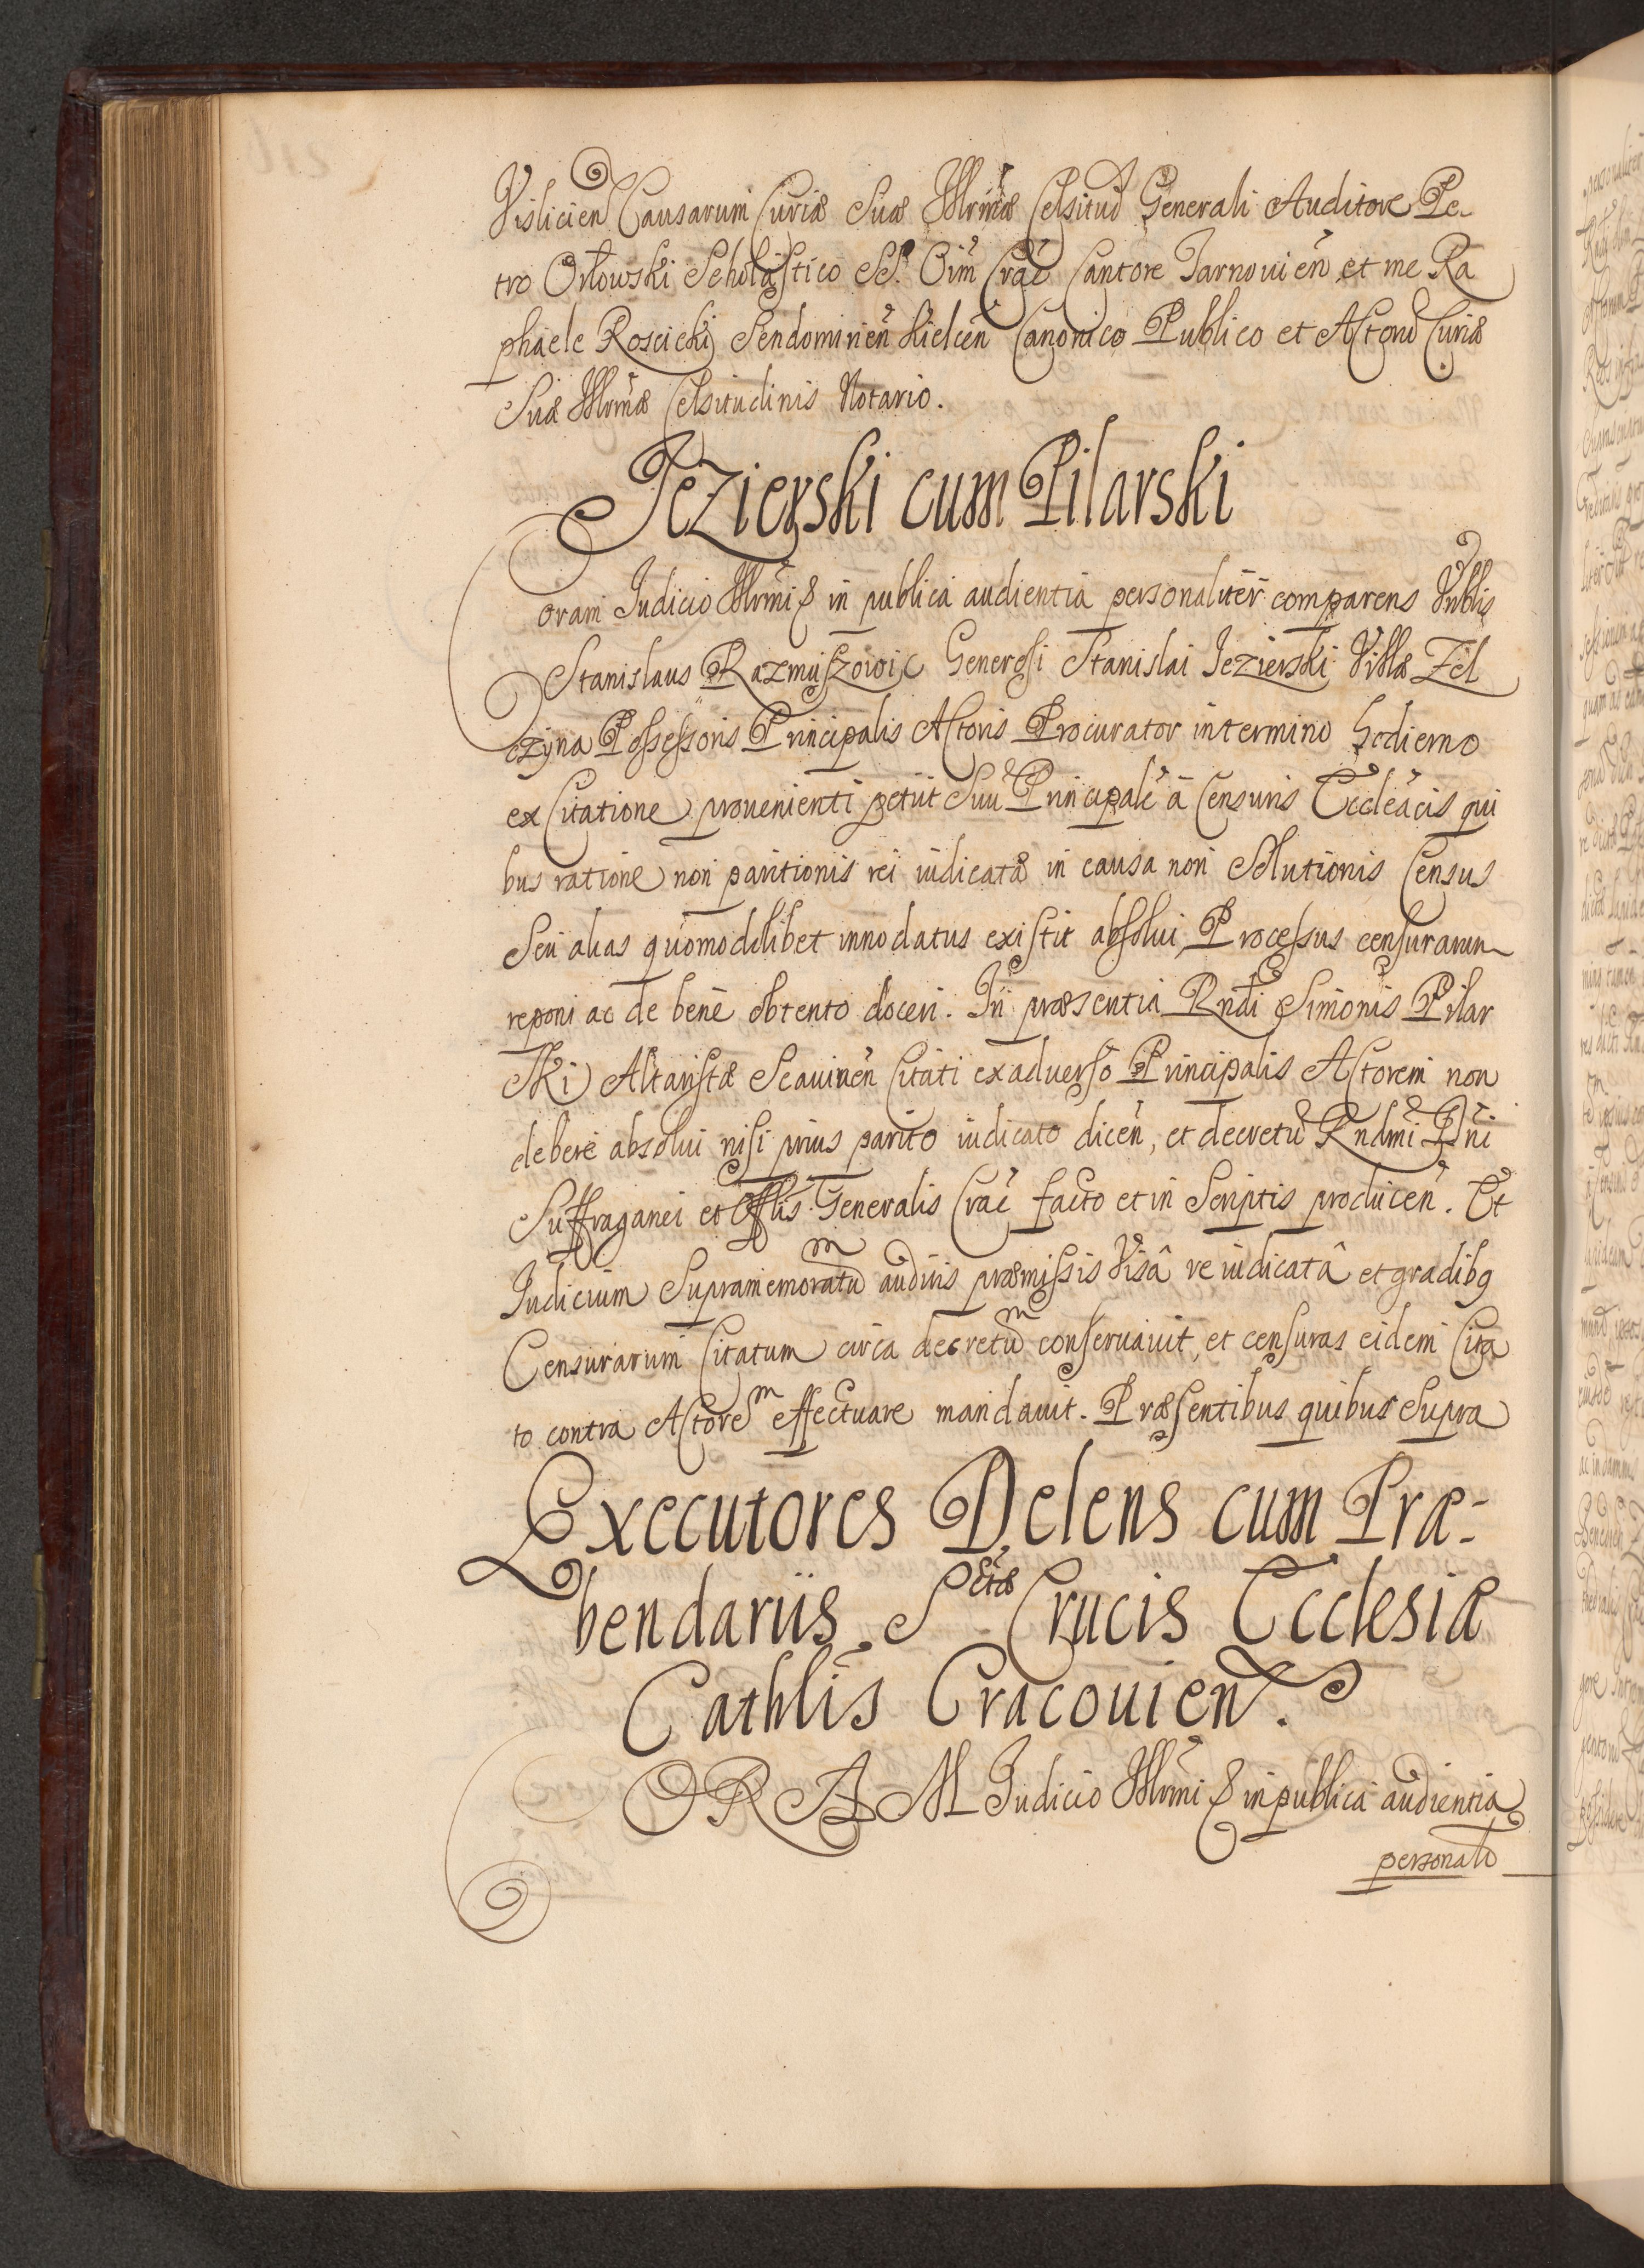 Vislicien Causarum Curiæ Suæ Illrmæ Celsitud Generali Auditore Pe-
tro Orłowski Scholastico SS. Oim Crac Cantore Tarnovien et me Ra
phaele Roscicki Sendomirien Kielcen Canonico Publico et Actorũ Curiæ
Suæ Illrmæ Celsitudinis Notario.
Jezierski cum Pilarski
Coram Judicio Illrmi & in publica audientia personaliter comparens Nblis
Stanislaus Razmuszowic Generosi Stanislai Jezierski Villæ Zel
czyna Possessoris Principalis Actoris Procurator in termino hodierno
ex Citatione provenienti petiit Suũ Principalẽ à Censuris Eccleācis qui
bus ratione non paritionis rei iudicatæ in causa non Solutionis Census
Seu alias quomodolibet innodatus existit absolui, Processus censurarum
reponi ac de bene obtento doceri. In præsentia Rndi Simonis Pilar
ski Altaristæ Scavinen Citati ex adverso Principalis Actorem non
debere absolui nisi prius parito iudicato dicen, et decretũ Rndmi Dni
Suffraganei et Offlis Generalis Crac facto et in Scriptis producen. Et
Judicium Supramemoratũ auditis præmissis Visâ re iudicatâ et gradibq
Censurarum Citatum circa decretũ conseruauit, et censuras eidem Cita
to contra Actorem effectuare mandauit. Præsentibus quibus Supra
Executores Delens cum Præ-
bendariis Sctæ Crucis Ecclesiæ
Cathlis Cracouien.
CORAM Judicio Illrmi & in publica audientia
personalr